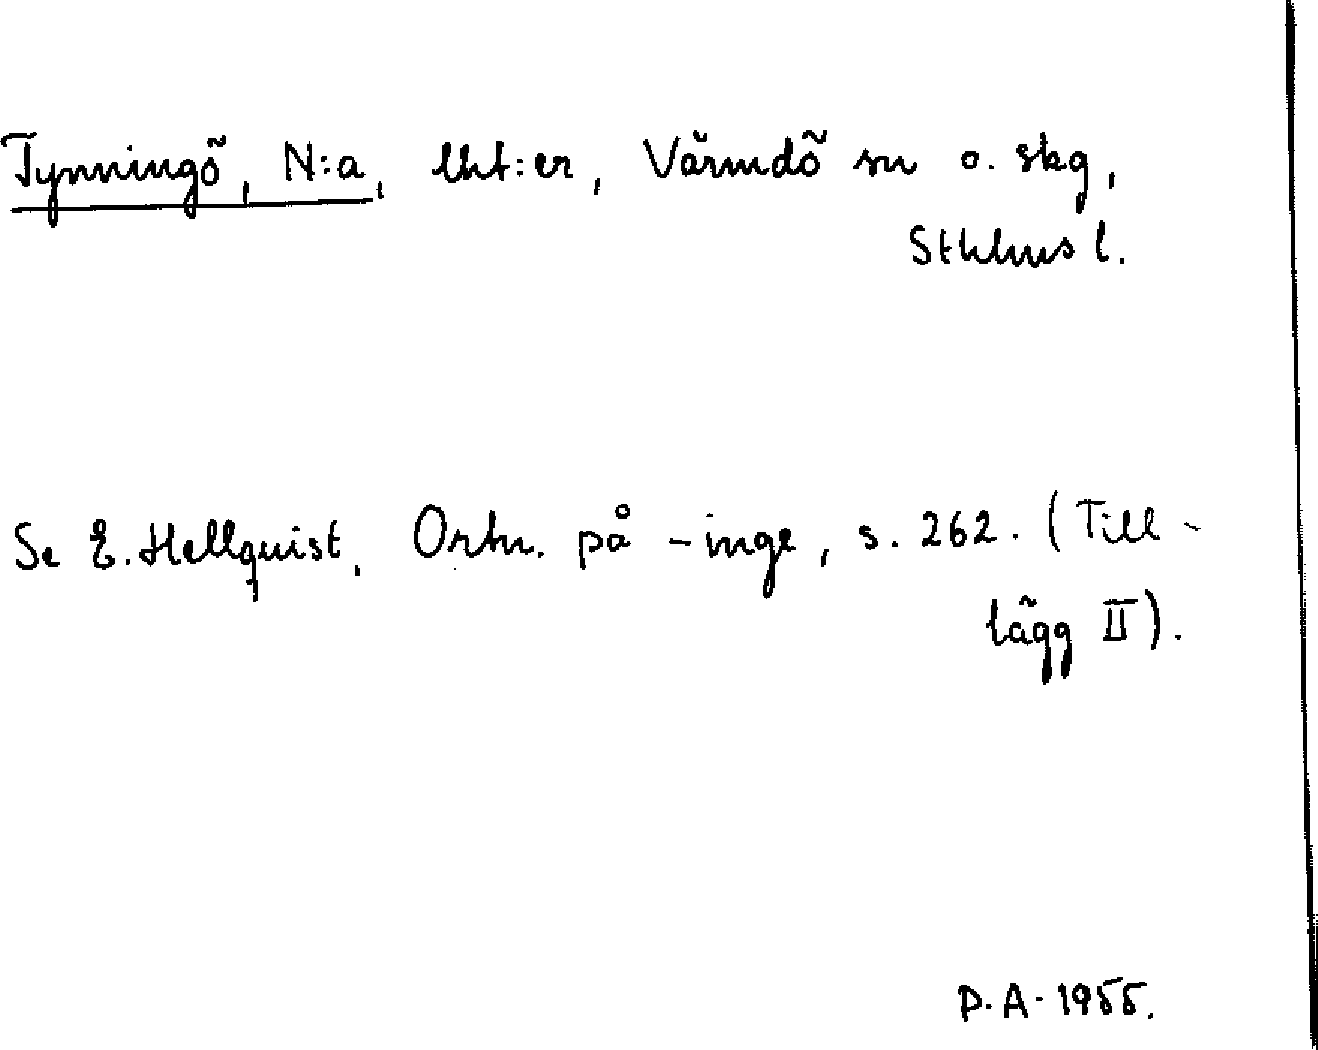 Tynningö, N:a, lht:er, Värmdö sn o. skg,
Sthlms l.
Se E. Hellquist, Ortn. på -inge, s. 262. (Till-
lägg II).
P.A. 1955.